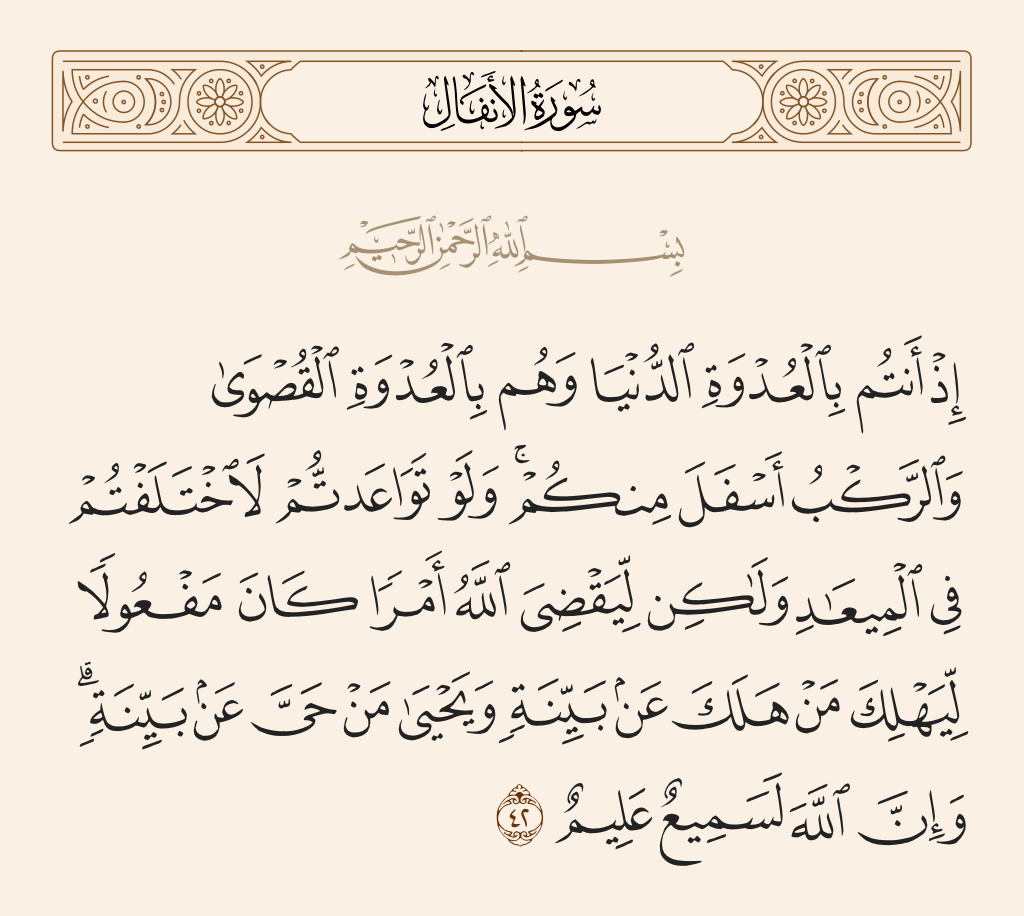 سُورَةُ الأَنفَالِ
بِسْمِ ٱللَّهِ ٱلرَّحْمَٰنِ ٱلرَّحِيمِ
إِذْ أَنتُم بِٱلْعُدْوَةِ ٱلدُّنْيَا وَهُم بِٱلْعُدْوَةِ ٱلْقُصْوَىٰ
وَٱلرَّكْبُ أَسْفَلَ مِنكُمْ ۚ وَلَوْ تَوَاعَدتُّمْ لَٱخْتَلَفْتُمْ
فِى ٱلْمِيعَـٰدِ وَلَـٰكِن لِّيَقْضِىَ ٱللَّهُ أَمْرًا كَانَ مَفْعُولًا
لِّيَهْلِكَ مَنْ هَلَكَ عَنۢ بَيِّنَةٍ وَيَحْيَىٰ مَنْ حَىَّ عَنۢ بَيِّنَةٍ ۗ
وَإِنَّ ٱللَّهَ لَسَمِيعٌ عَلِيمٌ ٤٢